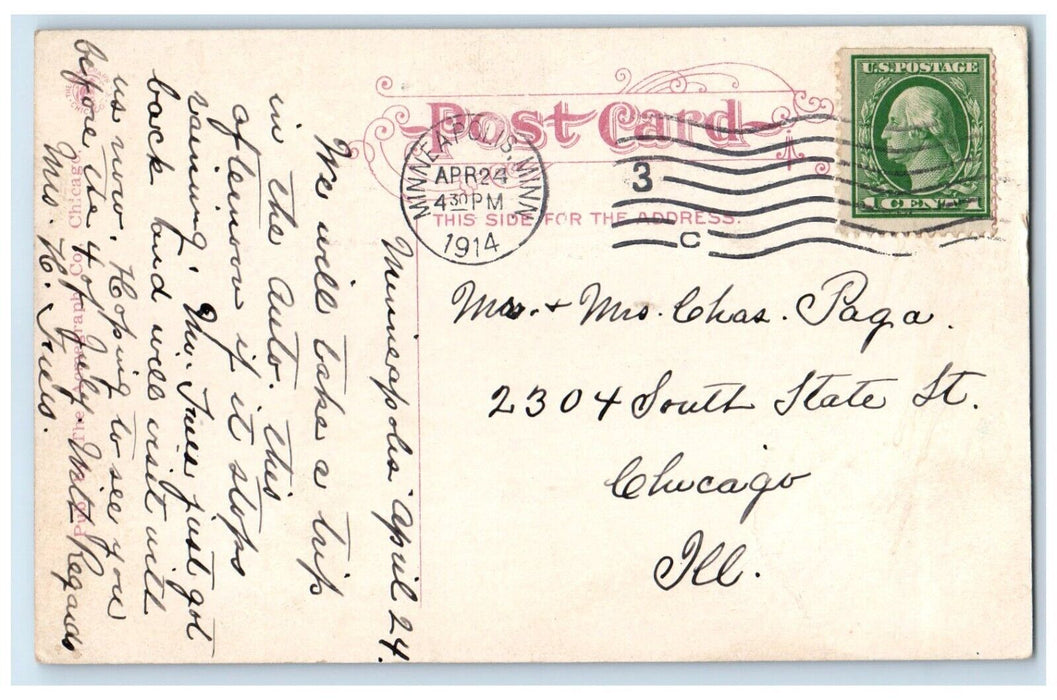 Post Card
THIS SIDE FOR THE ADDRESS.
MINNEAPOLIS, MINN.
APR 24
4 30 PM
1914
3
C
U.S. POSTAGE
1 CENT 1
Mr. + Mrs. Chas. Paga.
2304 South State St.
Chicago
Ill.
Minneapolis April 24.
We will take a trip
in the auto. this
afternoon if it stops
raining. Mr. just got
back and will visit with
us now. Hoping to see you
before the 4 of July With Regards
Mrs. H.
Pub. by The Acmegraph Co., Chicago